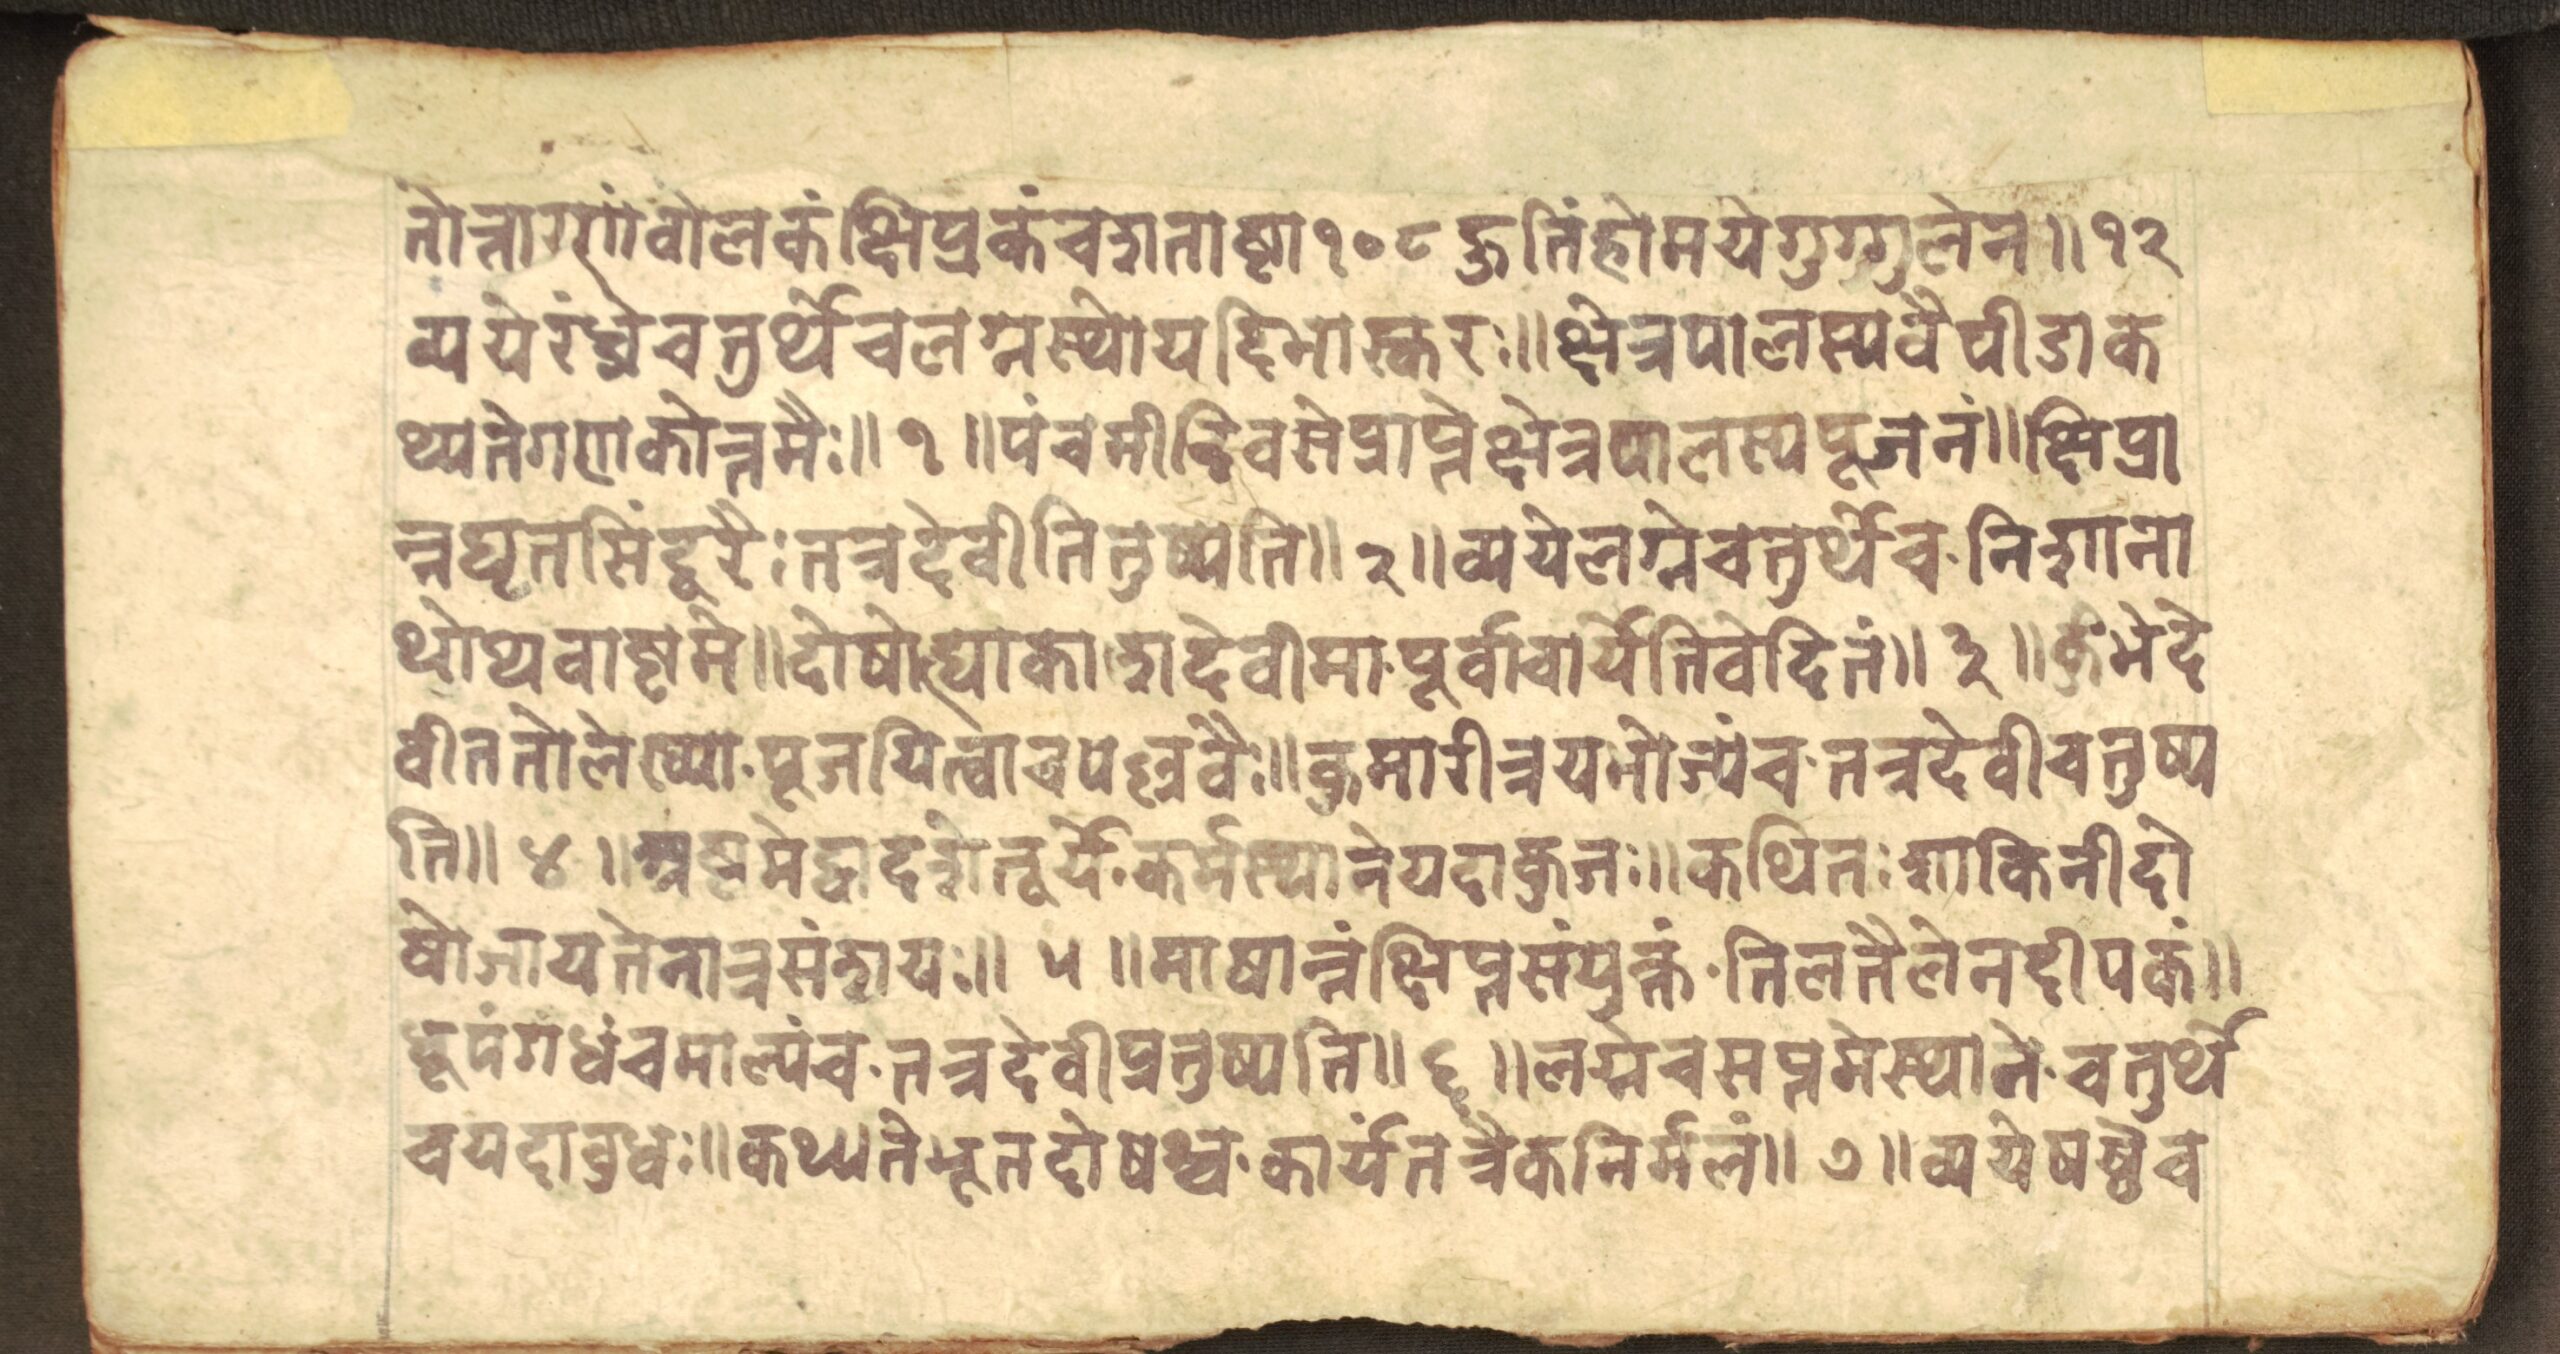 तोत्रारुणांवोलकंक्षिप्रकंचशताष्टा१०८हुतिंहोमयेगुग्गुलेन॥१२
व्ययेरंध्रेचतुर्थेचलग्नस्थोयदिभास्करः॥क्षेत्रपालस्यवैपीडाक
थ्यतेगणकोत्तमैः॥१॥पंचमीदिवसेप्राप्तेक्षेत्रपालस्यपूजनं॥क्षिप्रा
न्नघृतसिंदूरैःतत्रदेवीतितुष्यति॥२॥व्ययेलग्नेचतुर्थेच·निशाना
थोथवाष्टमे॥दोषो·काशदेवीमा·पूर्वाचार्येतिवेदितं॥३॥कुंभेदे
वीततोलेख्या·पूजयित्वाच॥कुमारीत्रयभोज्यंच·तत्रदेवीचतुष्य
ति॥४॥अष्टमेद्वादशेतूर्ये·कर्मस्थानेयदाकुजः॥कथितःशाकिनीदो
षोजायतेनात्रसंशयः॥५॥माषान्नंक्षिप्तसंयुक्तं·तिलतैलेनदीपकं॥
धूपंगधंचमाल्यंच·तत्रदेवीप्रतुष्यति॥६॥लग्नेचसप्तमेस्थाने·चतुर्थे
चयदाबुधः॥कथ्यतेभूतदोषश्च·कार्यंतत्रैकनिर्मलं॥७॥व्ययेषष्ठेच